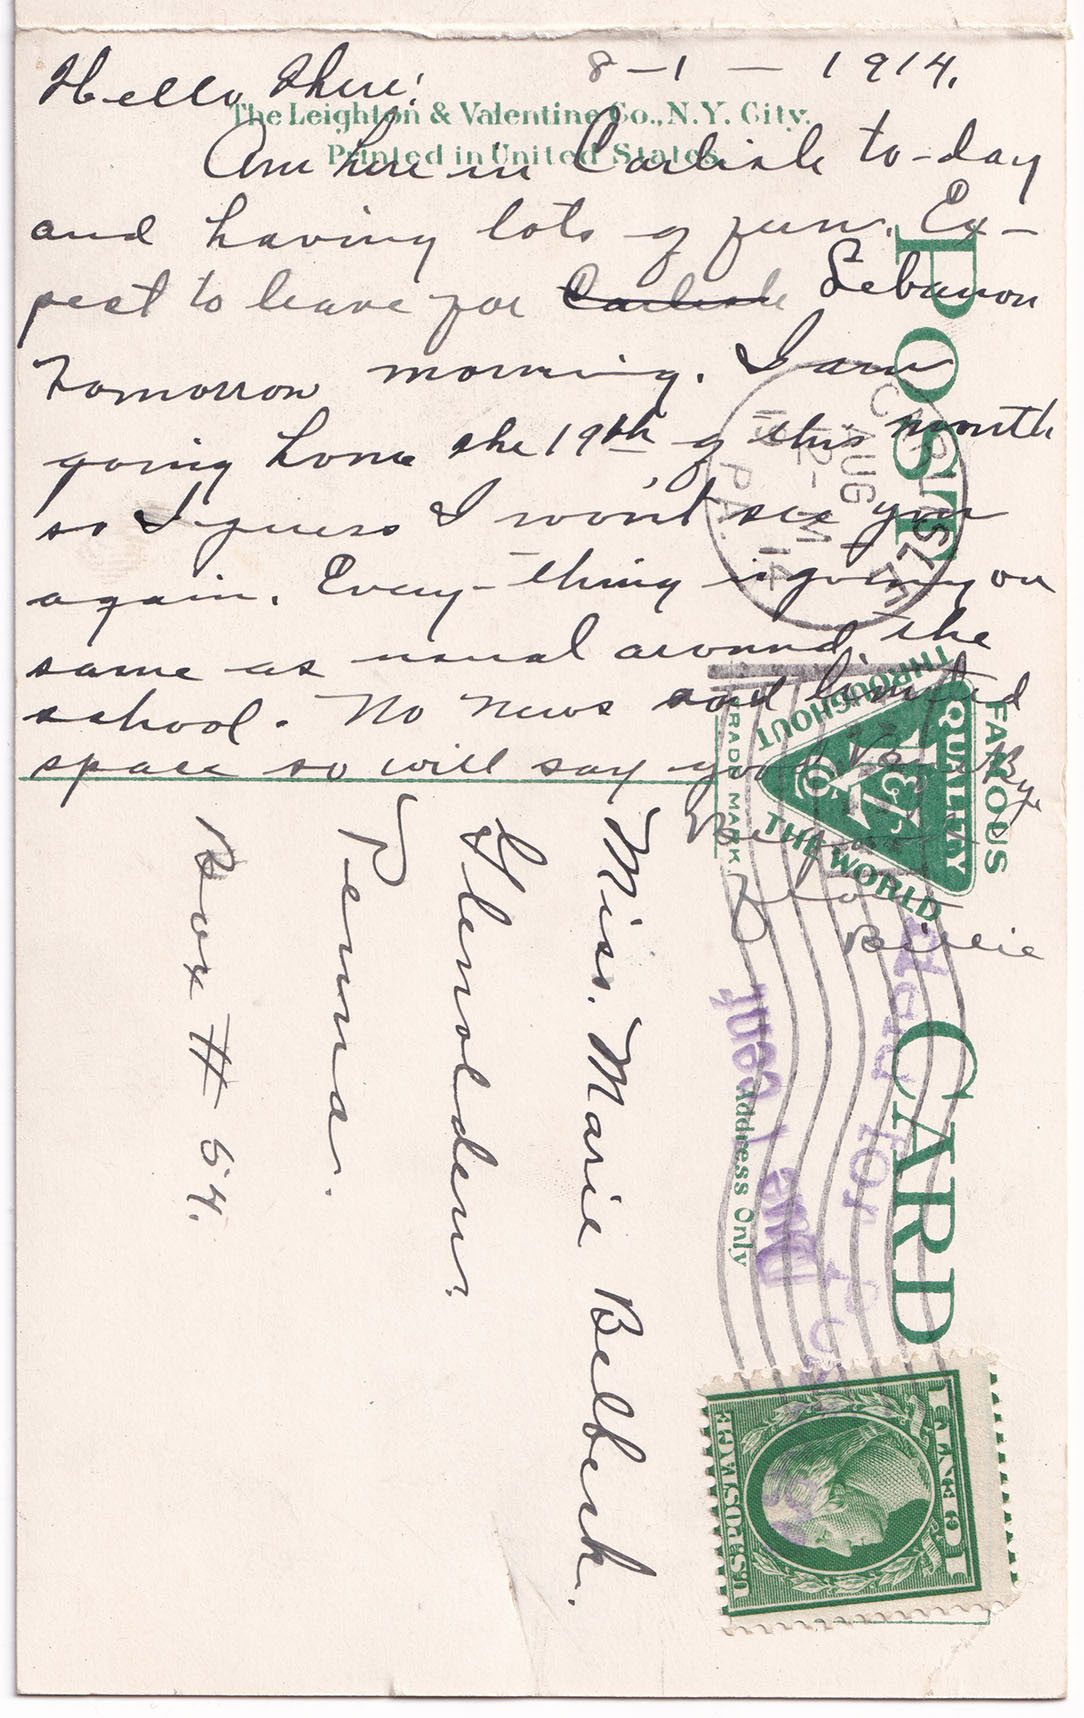 Hello there! 8-1-1914.
The Leighton & Valentine Co., N.Y. City.
Printed in United States.
Am here in Carlisle to-day
and having lots of fun. Ex-
pect to leave for Carlisle Lebanon
tomorrow morning. I am
going home the 19th of this month
so I guess I won't see you
again. Every-thing is going on
same as usual around the
school. No news and limited
space so will say good Bye
Billie
POST CARD
CARLISLE
AUG 1
12-M
1914
PA.
FAMOUS
THROUGHOUT
THE WORLD
QUALITY
L & V Co.
TRADE MARK
Address Only
Held for Postage
Due 1 cent,
U.S. POSTAGE
1 CENT 1
Miss. Marie Belbeck.
Glenolden.
Penna.
Box # 54.